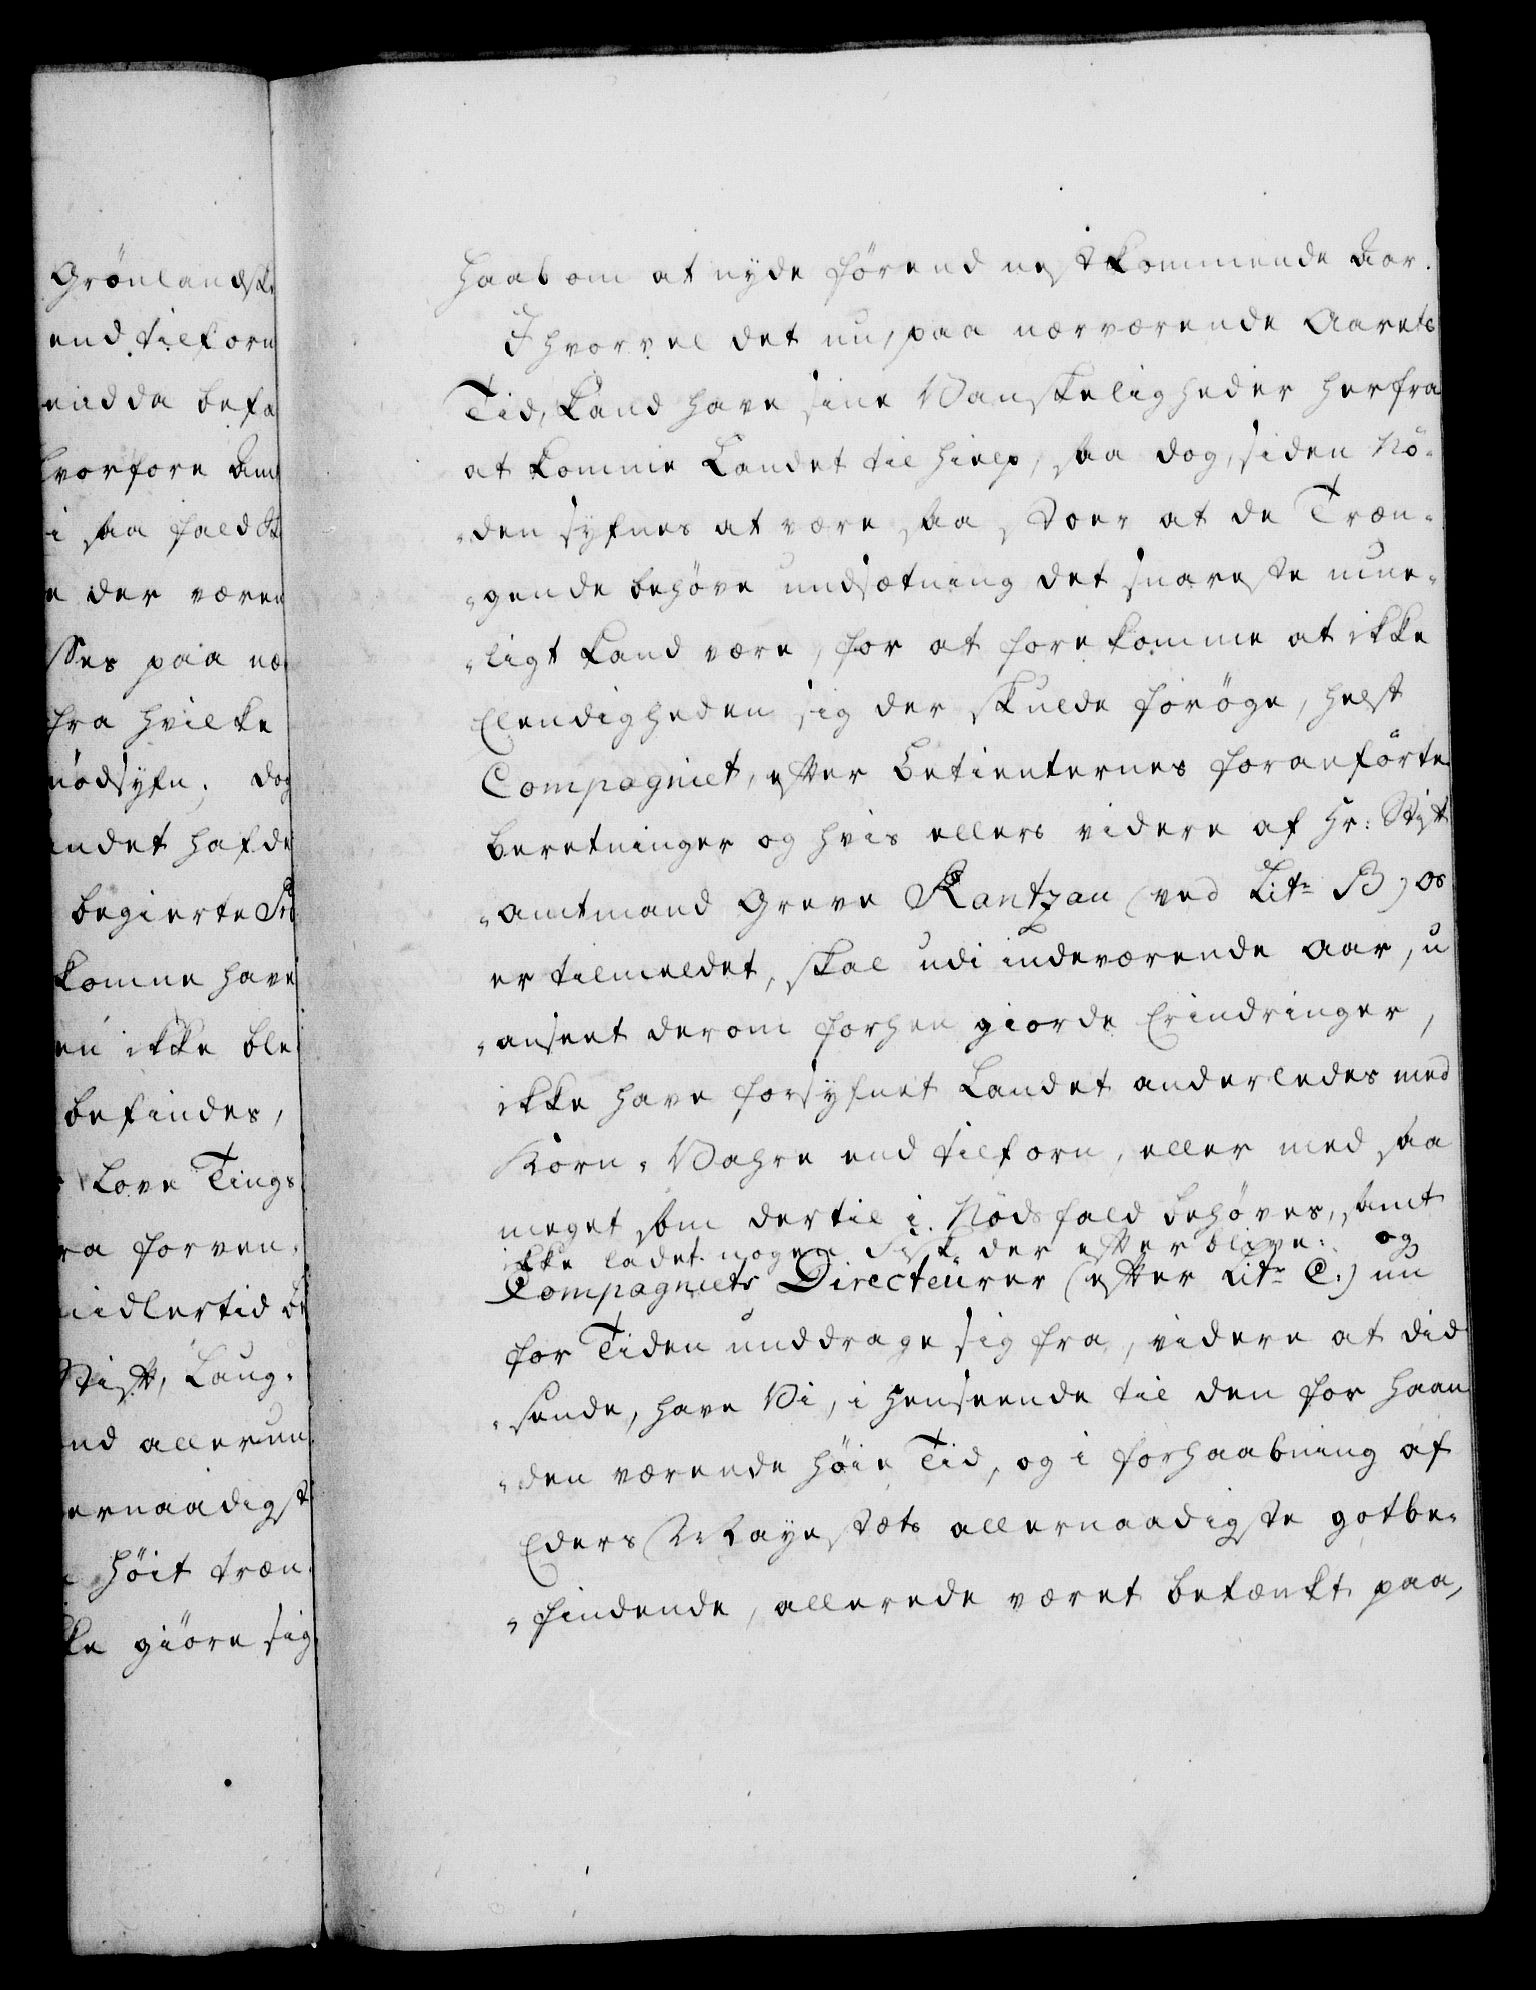 Grönlandsk
end tilforn
endda befa
hvorfore Am
i saa fald
e der væren
sses paa næ
fra hvilke
nödsyfn; dog
andet hafde
begierte
komne have
en ikke ble
befindes,
Love Tings
ra forven
imidlertid be
Stift, Laug-
nd allerun
ernaadigst
höit træn-
ke giöre sig
haab om at nyde förend nestkommende Aar.
Ihvorvel det nu, paa nærværende Aarets
Tid, kand have sine Vanskeligheder herfra
at komme Landet til hielp, saa dog, siden Nö-
-den syfnes at være saa stoer at de Træn-
-gende behöve undsætning det snareste mue-
-ligt kand være, for at forekomme at ikke
Elendigheden sig der skulde foröge, helst
Compagniet, efter betienternes foranförte
beretninger og hvis ellers videre af Hr: Stift
-amtmand Greve Rantzau (ved Litr B) os
er tilmeldet, skal udi indeværende Aar, u
-anseet derom forhen giorde Erindringer,
ikke have forsyfnet Landet anderledes med
Korn-Vahre end tilforn, eller med saa
meget som dertil i Nöds fald behöves, samt
ikke ladet nogen Fisk der efterblive: og
Compagniets Directeurer (efter Litr C.) nu
for Tiden unddrage sig fra, videre at did
-sende, have Vi, i Henseende til den for haan
-den værende höie Tid, og i forhaabning af
Eders Mayestæts allernaadigste gotbe-
-findende, allerede været betænkt paa,